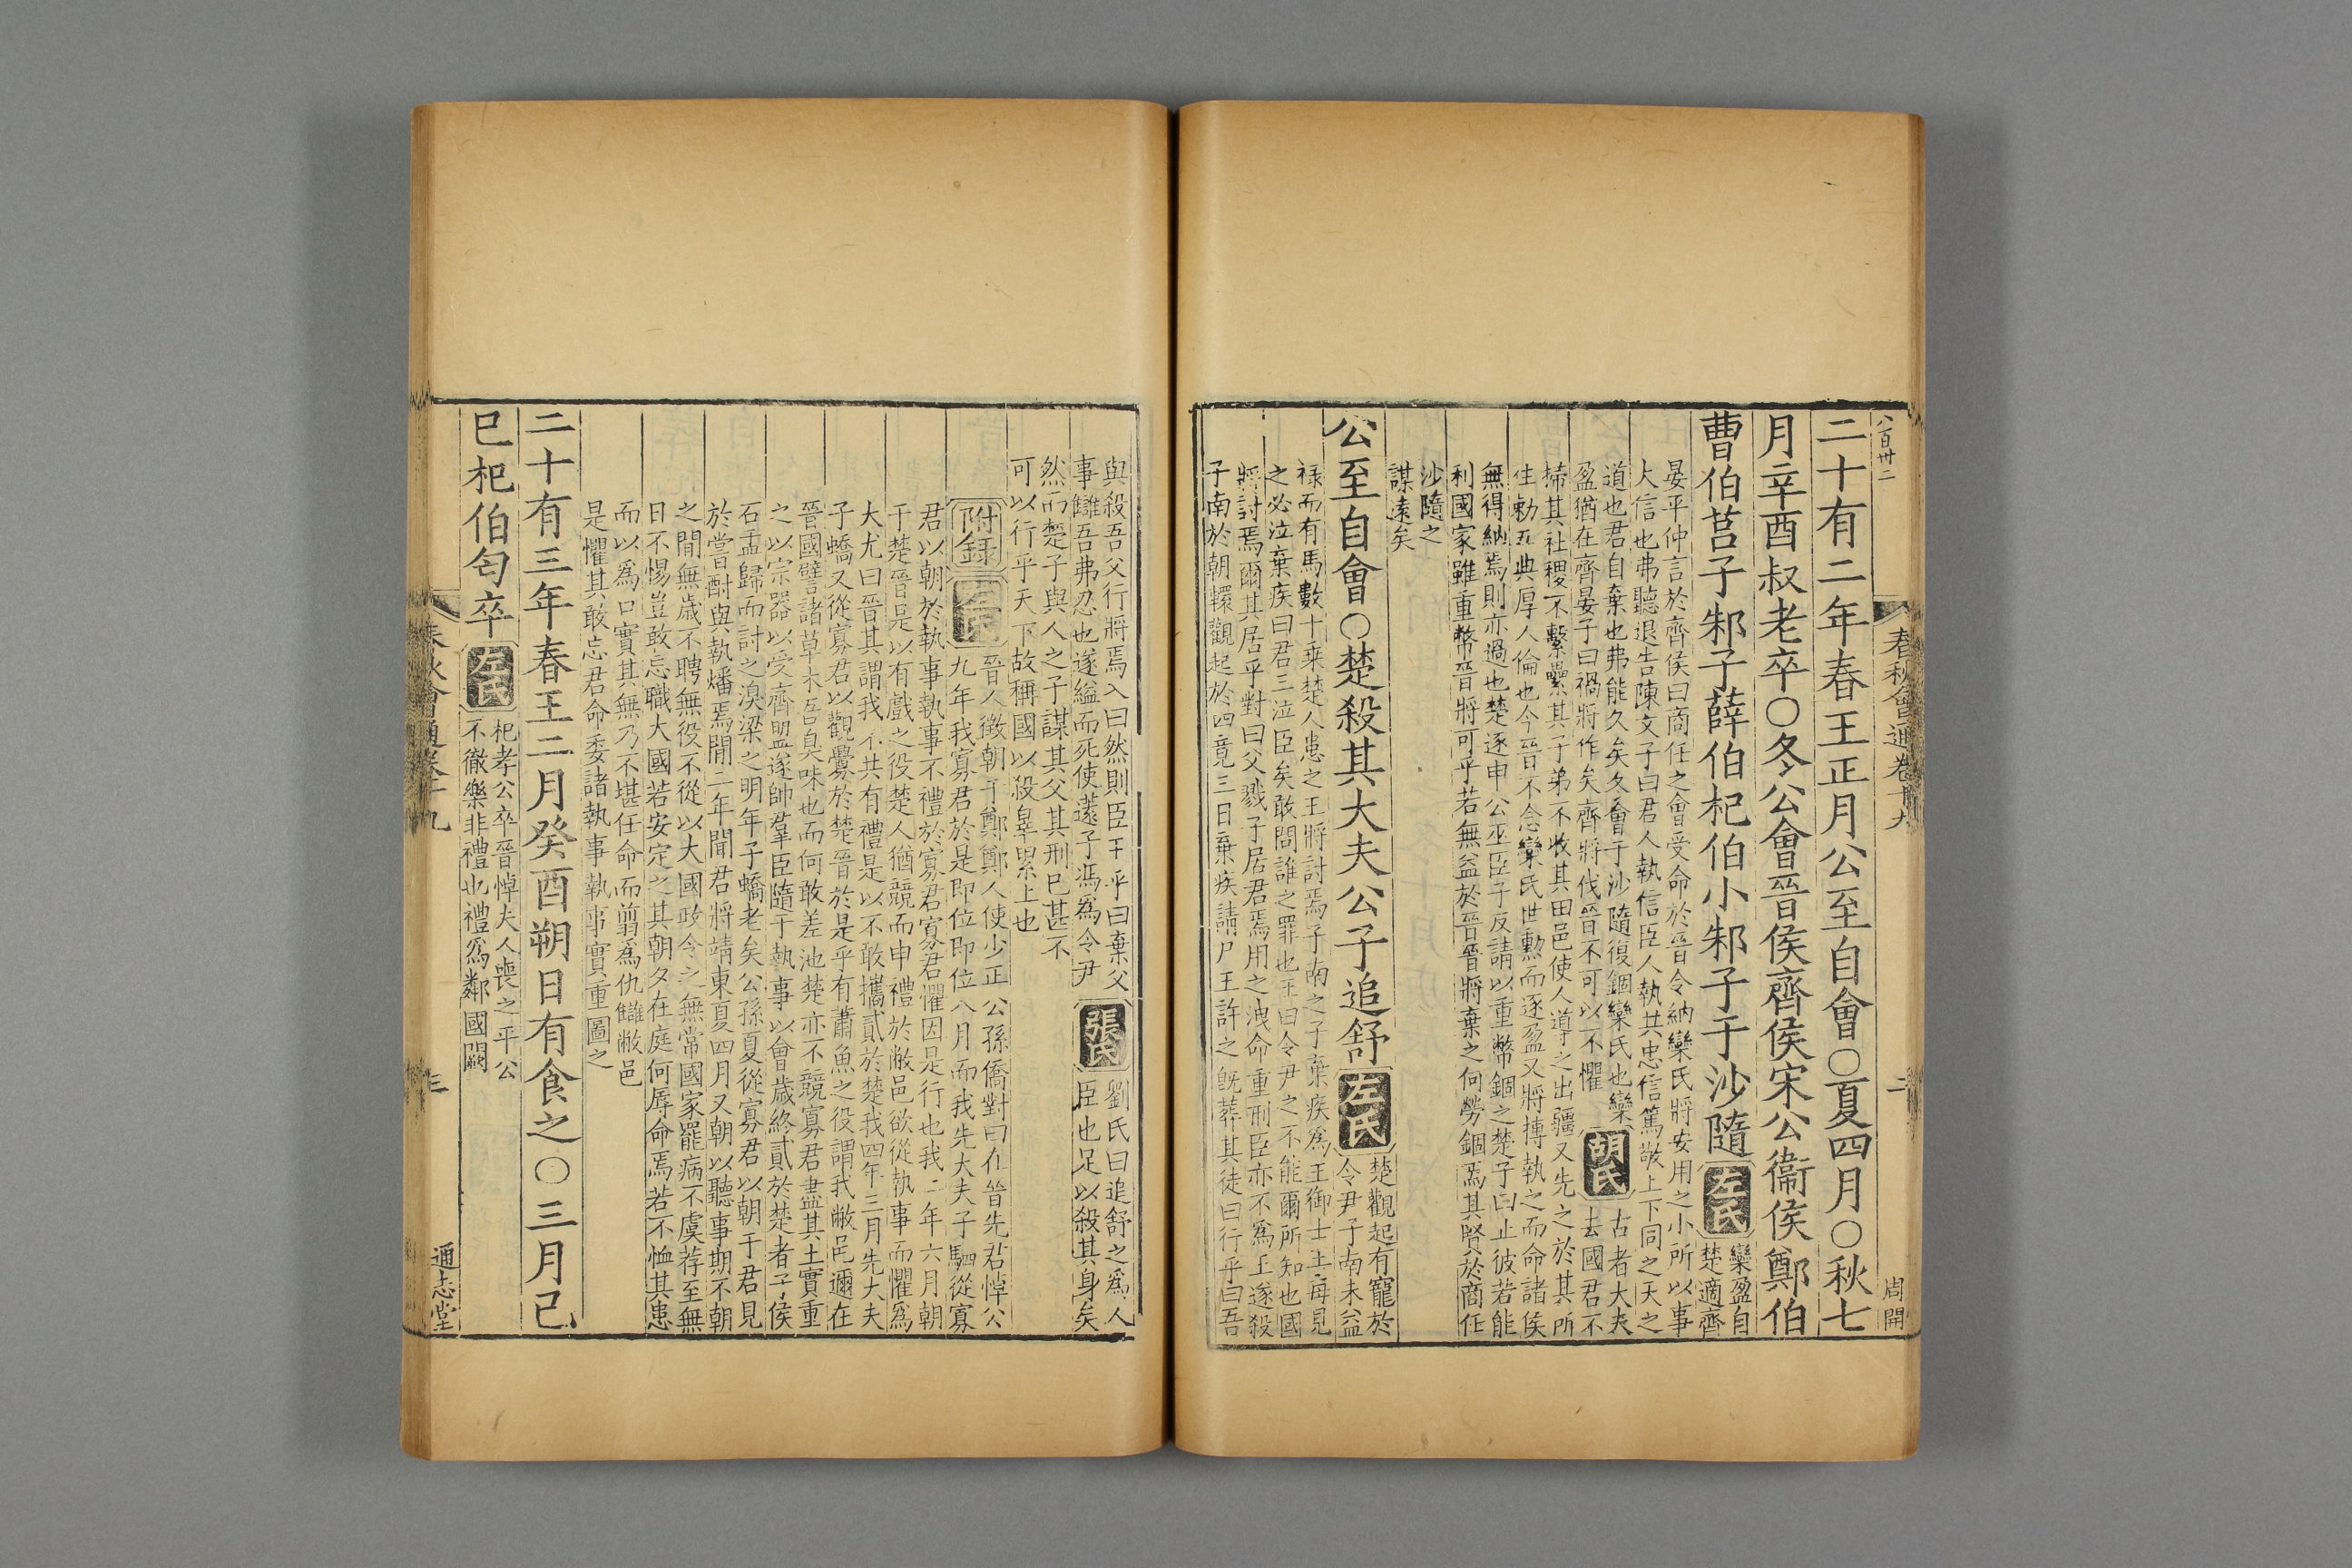 八百卅二
春秋會通卷十九
二
周開
二十有二年春王正月公至自會○夏四月○秋七
月辛酉叔老卒○冬公會晉侯齊侯宋公衞侯鄭伯
曹伯莒子邾子薛伯杞伯小邾子于沙隨
左氏
欒盈自
楚適齊
晏平仲言於齊侯曰商任之會受命於晉令納欒氏將安用之小所以事
大信也弗聽退告陳文子曰君人執信臣人執共忠信篤敬上下同之天之
道也君自棄也弗能久矣冬會于沙隨復錮欒氏也欒
盈猶在齊晏子曰禍將作矣齊將伐晉不可以不懼
胡氏
古者大夫
去國君不
掃其社稷不繫纍其子弟不收其田邑使人導之出疆又先之於其所
往勑五典厚人倫也今晉不念欒氏世勲而逐盈又將摶執之而命諸侯
無得納焉則亦過也楚逐申公巫臣子反請以重幣錮之楚子曰止彼若能
利國家雖重幣晉將可乎若無益於晉晉將棄之何勞錮焉其賢於商任
沙隨之
謀遠矣
公至自會○楚殺其大夫公子追舒
左氏
楚觀起有寵於
令尹子南未益
禄而有馬數十乗楚人患之王將討焉子南之子棄疾爲王御士王每見
之必泣棄疾曰君三泣臣矣敢問誰之罪也王曰令尹之不能爾所知也國
將討焉爾其居乎對曰父戮子居君焉用之洩命重刑臣亦不爲王遂殺
子南於朝轘觀起於四竟三日棄疾請尸王許之旣葬其徒曰行乎曰吾
與殺吾父行將焉入曰然則臣王乎曰棄父
事讎吾弗忍也遂縊而死使薳子馮爲令尹
張氏
劉氏曰追舒之爲人
臣也足以殺其身矣
然而楚子與人之子謀其父其刑巳甚不
可以行乎天下故稱國以殺辠累上也
附録
左氏
晉人徴朝于鄭鄭人使少正公孫僑對曰在晉先君悼公
九年我寡君於是即位即位八月而我先大夫子駟從寡
君以朝於執事執事不禮於寡君寡君懼因是行也我二年六月朝
于楚晉是以有戲之役楚人猶競而申禮於敝邑欲從執事而懼爲
大尤曰晉其謂我不共有禮是以不敢攜貳於楚我四年三月先大夫
子蟜又從寡君以觀釁於楚晉於是乎有蕭魚之役謂我敝邑邇在
晉國譬諸草木吾臭味也而何敢差池楚亦不競寡君盡其土實重
之以宗器以受齊盟遂帥羣臣隨于執事以會歲終貳於楚者子侯
石盂歸而討之湨梁之明年子蟜老矣公孫夏從寡君以朝于君見
於嘗酎與執燔焉閒二年聞君將靖東夏四月又朝以聽事期不朝
之閒無歲不聘無役不從以大國政令之無常國家罷病不虞荐至無
日不惕豈敢忘職大國若安定之其朝夕在庭何辱命焉若不恤其患
而以爲口實其無乃不堪任命而翦爲仇讎敝邑
是懼其敢忘君命委諸執事執事實重圖之
二十有三年春王二月癸酉朔日有食之○三月己
巳杞伯匄卒
左氏
杞孝公卒晉悼夫人喪之平公
不徹樂非禮也禮爲鄰國闕
春秋會通卷十九
三
通志堂